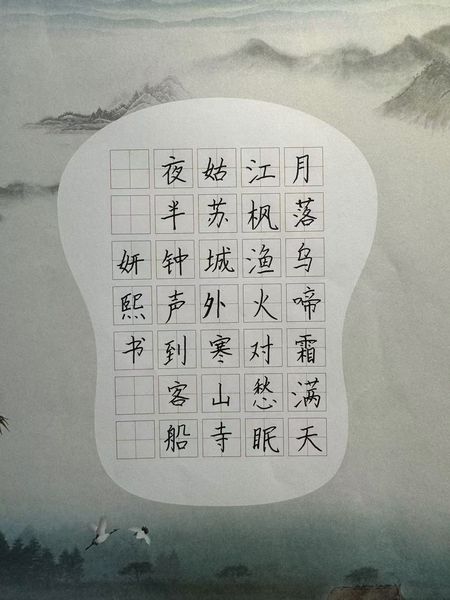 月落乌啼霜满天
江枫渔火对愁眠
姑苏城外寒山寺
夜半钟声到客船
妍熙书